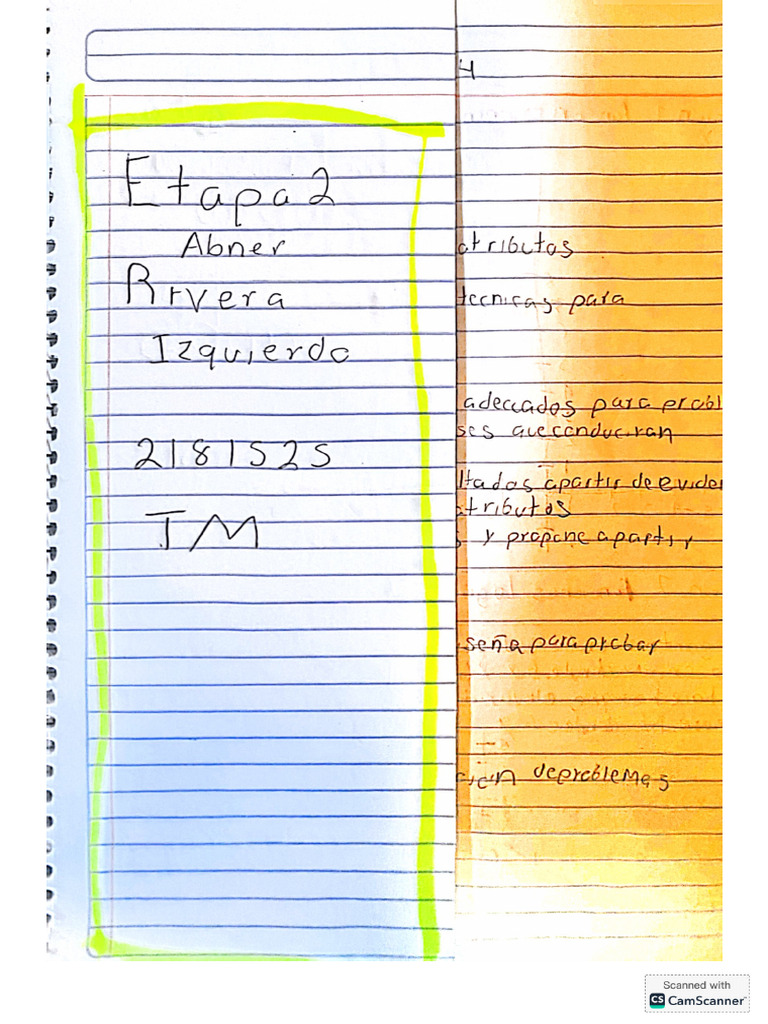 Etapa 2
Abner
Rivera
Izquierdo
2181525
TM
4
atributos
tecnicas para
adecuados para probl
ses que conduciran
ltados apartir de eviden
atributos
y propone apartir
seña para probar
cion de problemas
Scanned with
CS CamScanner